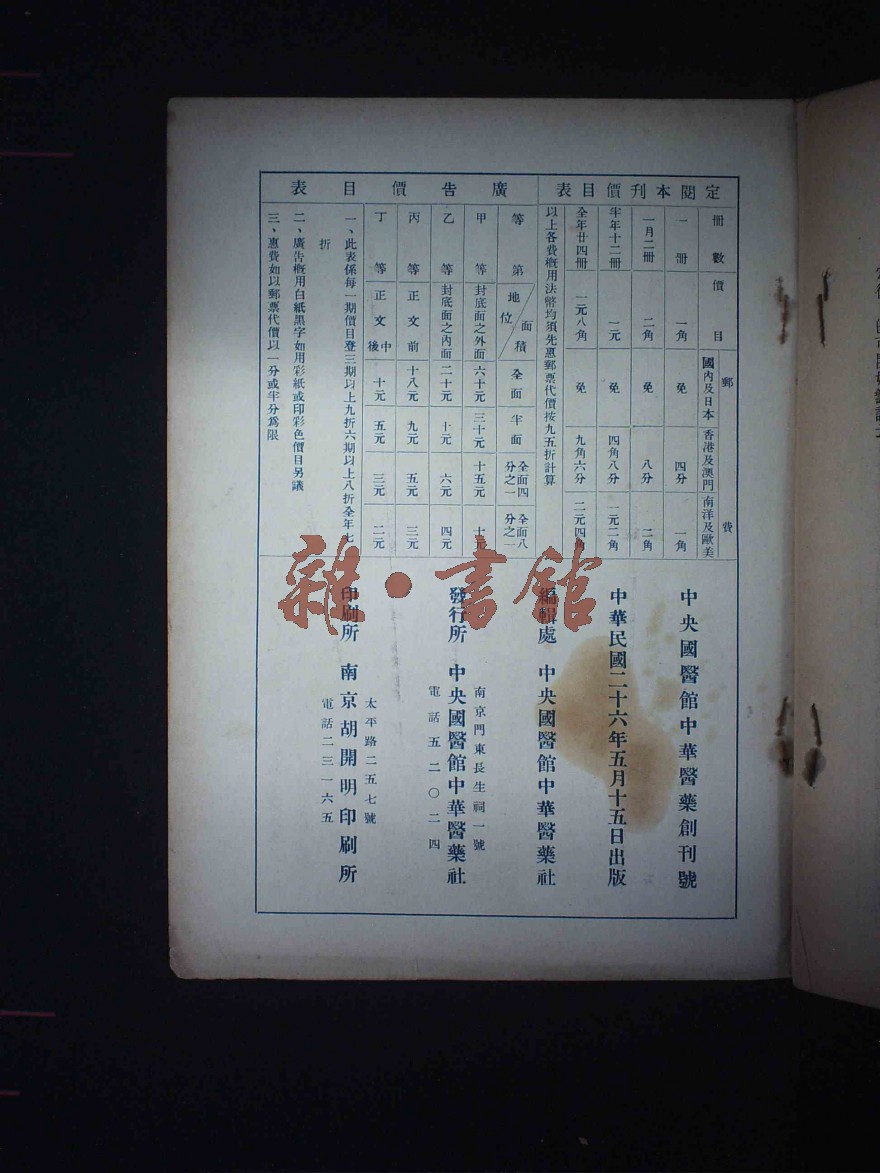 定閱本刊價目表
冊數 價目 郵費 國內及日本 香港及澳門 南洋及歐美
一冊 一角 免 四分 一角
一月二冊 二角 免 八分 二角
半年十二冊 一元 免 四角八分 一元二角
全年廿四冊 一元八角 免 九角六分 二元四角
以上各費概用法幣均須先惠郵票代價按九五折計算
廣告價目表
等第 地位 面積 全面 半面 全面四分之一 全面八分之一
甲等 封底面之外面 六十元 三十元 十五元 十元
乙等 封底面之內面 二十元 十元 六元 四元
丙等 正文前 十八元 九元 五元 三元
丁等 正文中後 十元 五元 三元 二元
一、此表係每一期價目登三期以上九折六期以上八折全年七
折
二、廣告概用白紙黑字如用彩紙或印彩色價目另議
三、惠費如以郵票代價以一分或半分為限
中央國醫館中華醫藥創刊號
中華民國二十六年五月十五日出版
編輯處 中央國醫館中華醫藥社
南京門東長生祠一號
發行所 中央國醫館中華醫藥社
電話五二〇二四
太平路二五七號
印刷所 南京胡開明印刷所
電話二三一六五
雜·書館